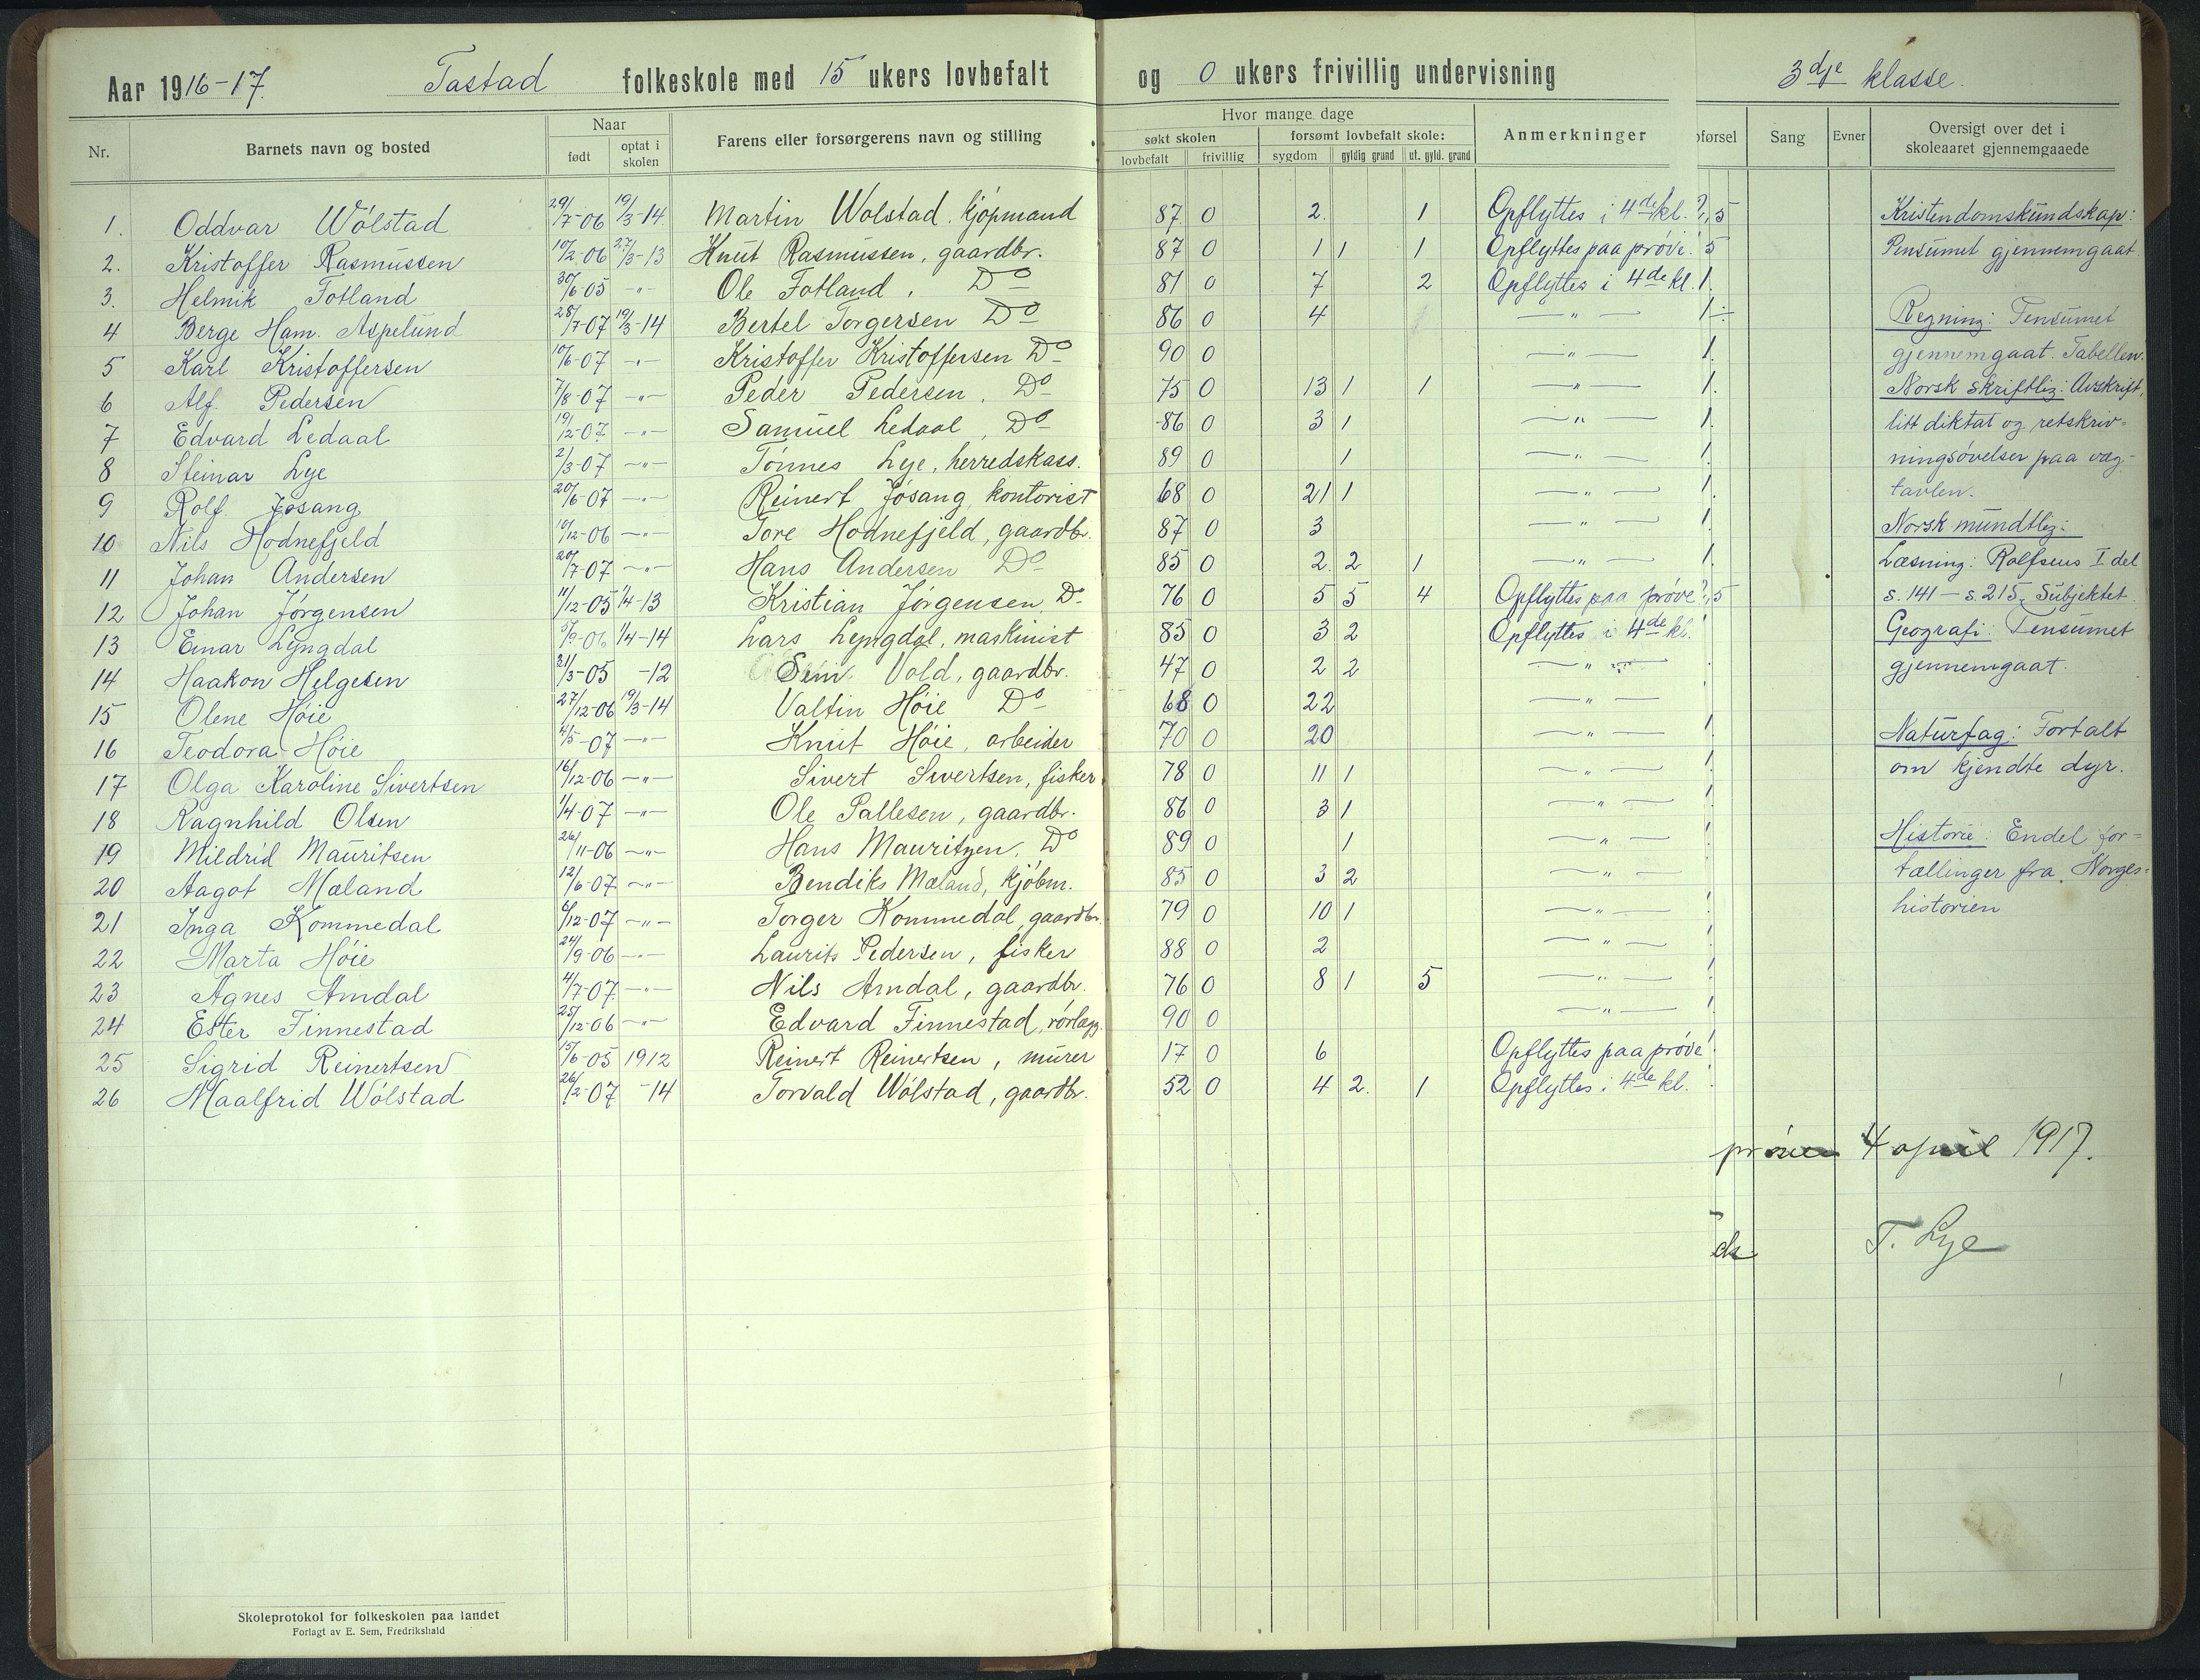 Aar 1916-17. Tastad folkeskole med 15 ukers lovbefalt og 0 ukers frivillig undervisning 3dje klasse.
Nr. Barnets navn og bosted Naar født optat i skolen Farens eller forsørgerens navn og stilling Hvor mange dage søkt skolen lovbefalt frivillig forsømt lovbefalt skole: sygdom gyldig grund ut. gyld. grund Anmerkninger førsel Sang Evner Oversigt over det i skoleaaret gjennemgaaede
1. Oddvar Wólstad 29/7-06 19/3-14 Martin Wolstad. kjópmand 87 0 2. 1 Opflyttes i 4de kl. 5
2. Kristoffer Rasmussen 10/2-06 27/3-13 Knut Rasmussen, gaardbr. 87 0 1 1 1 Opflyttes paa próve 5
3. Helmik Fotland 30/6-05 -"- Ole Fotland, Do 81 0 7 2 Opflyttes i 4de kl. 1.
4 Berge Ham. Aspelund 28/7-07 19/3-14 Bertel Torgersen Do 86 0 4 -"-
5 Karl Kristoffersen 10/6-07 -"- Kristoffer Kristoffersen Do 90 0 -"- 1.
6 Alf. Pedersen 7/8-07 -"- Peder Pedersen, Do 75 0 13 1 1 -"- 1.
7 Edvard Ledaal 19/12-07 -"- Samuel Ledaal, Do 86 0 3 1 -"- 1.
8 Steinar Lye 2/3-07 -"- Tónnes Lye, herredskass. 89 0 1 -"- 1.
9 Rolf. Jøsang 20/6-07 -"- Reinert Jósang, kontorist 68 0 21 1 -"- 1.
10 Nils Hodnefjeld 10/12-06 -"- Tore Hodnefjeld, gaardbr. 87 0 3 -"- 1.
11 Johan Andersen 20/7-07 -"- Hans Andersen Do 85 0 2. 2 1 -"- 1.
12 Johan Jórgensen 11/12-05 1/4-13 Kristian Jórgensen, Do 76 0 5 5 4 Opflyttes paa próve 5
13 Einar Lyngdal 1/4-14 Lars Lyngdal, maskinist 85 0 3 2 Opflyttes i 4de kl.
14 Haakon Helgesen 21/3-05 -12 Sem. Vold, gaardbr. 47 0 2 2 -"-
15 Olene Hóie 27/12-06 19/3-14 Valtin Hóie Do 68 0 22 -"-
16 Teodora Hóie 4/5-07 -"- Knut Hóie, arbeider 70 0 20 -"-
17 Olga Karoline Sivertsen 16/12-06 -"- Sivert Sivertsen, fisker 78 0 11 1 -"-
18 Ragnhild Olsen 1/4-07 -"- Ole Pallesen, gaardbr. 86 0 3 1 -"-
19 Mildrid Mauritsen 26/11-06 -"- Hans Mauritzen, Do 89 0 1 -"-
20 Aagot Mæland 12/6-07 -"- Bendiks Mæland, kjóbm. 85 0 3 2 -"-
21 Inga Kommedal 6/12-07 -"- Torger Kommedal, gaardbr. 79 0 10 1 -"-
22 Marta Hóie 24/9-06 -"- Laurits Pedersen, fisker 88 0 2 -"-
23 Agnes Amdal 4/7-07 -"- Nils Amdal, gaardbr. 76 0 8 1 5 -"-
24 Ester Finnestad 25/12-06 -"- Edvard Finnestad, rórlægg. 90 0 -"-
25 Sigrid Reinertsen 15/6-05 1912 Reinert Reinertsen, murer 17 0 6 Opflyttes paa próve
26 Maalfrid Wólstad 26/2-07 -14 Torvald Wólstad, gaardbr. 52 0 4 2. 1 Opflyttes i 4de kl.
Kristendomskundskap:
Pensumet gjennemgaat
Regning: Pensumet
gjennemgaat. Tabellen.
Norsk skriftlig: Avskrift,
litt diktat og retskriv-
ningsóvelser paa væg-
tavlen.
Norsk mundtlig:
Læsning: Rolfsens I del
s. 141 - s. 215. Subjektet.
Geografi: Pensumet
gjennemgaat.
Naturfag: Fortalt
om kjendte dyr.
Historie: Endel for-
tællinger fra Norges-
historien
próven 4 april 1917.
T. Lye
Skoleprotokol for folkeskolen paa landet
Forlagt av E. Sem, Fredrikshald